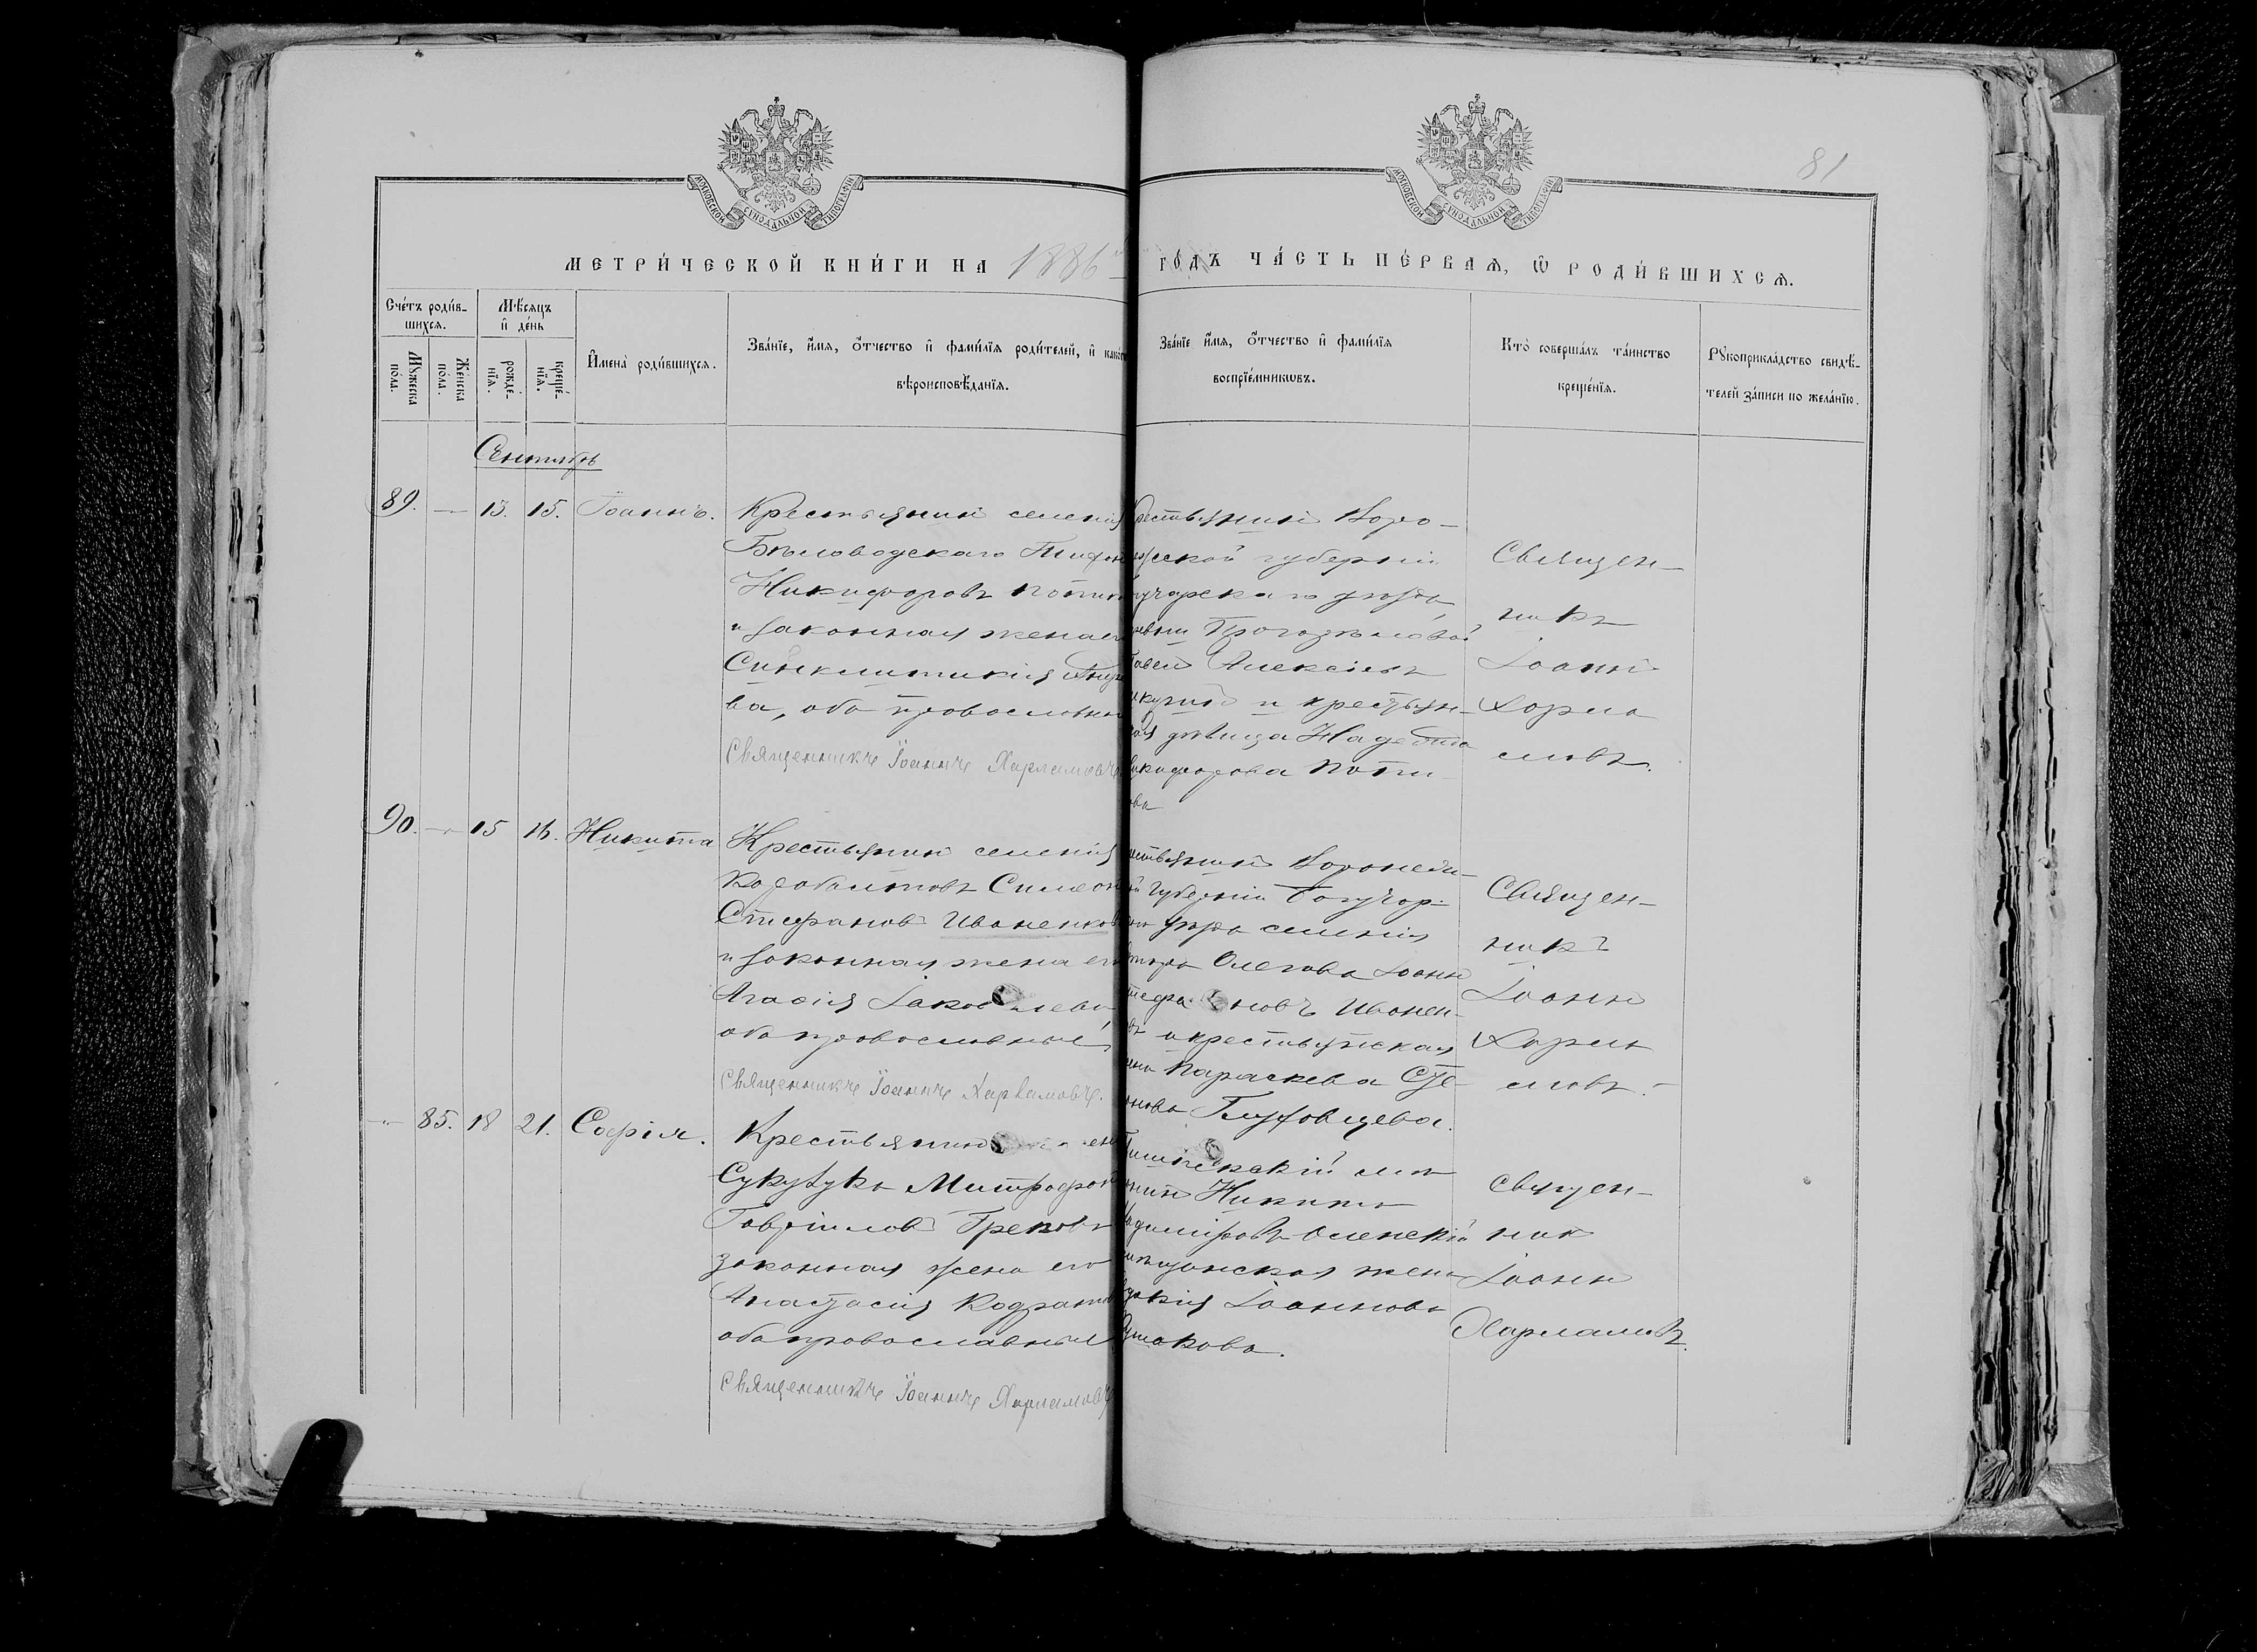 81
МОСКОВСКОЙ СѴНОДАЛЬНОЙ ТИПОГРАФІИ
МОСКОВСКОЙ СѴНОДАЛЬНОЙ ТИПОГРАФІИ
МЕТРИ́ЧЕСКОЙ КНИ́ГИ НА 1886 ГО́ДЪ ЧА́СТЬ ПЕ́РВАѦ, Ѡ РОДИ́ВШИХСѦ.
Сче́тъ роди́в-
шихсѧ.
Мꙋжеска
по́ла.
Же́нска
по́ла.
Мѣ́сѧцъ
и де́нь
рожде́-
нїѧ.
креще́-
нїѧ.
И҆мена̀ роди́вшихсѧ.
Зва́нїе, и҆́мѧ, ѻ҆́тчество и҆ фами́лїѧ роди́телей, и҆ како́
вѣроисповѣ́данїѧ.
Зва́нїе и҆́мѧ, ѻ҆́тчество и҆ фами́лїѧ
воспрїе́мникѡвъ.
Кто̀ соверша́лъ та́инство
креще́нїѧ.
Рꙋкоприкла́дство свидѣ́-
телей за́писи по жела́нїю.
Сентябрь
89. — 13. 15. Іоаннъ.
Крестьянинъ селенія
Бѣловодскаго Тихон
Никифоровъ
и законная жена
Синклитикія
ва, оба православн
Священникъ Іоаннъ Харламовъ
Крестьянинъ Воро-
жской губерніи
гучарскаго уѣзда
Алексіевъ
и крестьян-
ая дѣвица Надежда
икифорова
ова
Священ-
никъ
Іоаннъ
Харла
мовъ.
90. — 15 16. Никита
Крестьянинъ селенія
Симеон
Стефановъ Иваненков
и законная жена его
Агафія Іаковлева
оба православные
Священникъ Іоаннъ Харламовъ.
естьянинъ Воронеж-
й губерніи Богучар-
аго уѣзда селенія
Іоанн
тефановъ Иванен-
въ и крестьянская
ена Параскева
онова Глуховцева.
Священ-
никъ
Іоаннъ
Харла
мовъ.
— 85. 18 21. Софія.
Крестьянинъ
Митрофан
Гавріиловъ Грековъ
законная жена его
Анастасія Кодрато
оба православные.
Священникъ Іоаннъ Харламовъ
анинъ Никита
адиміровъ Оленскій
ѣщанская жена
Іоаннова
шакова.
Священ-
ник
Іоаннъ
Харламовъ.